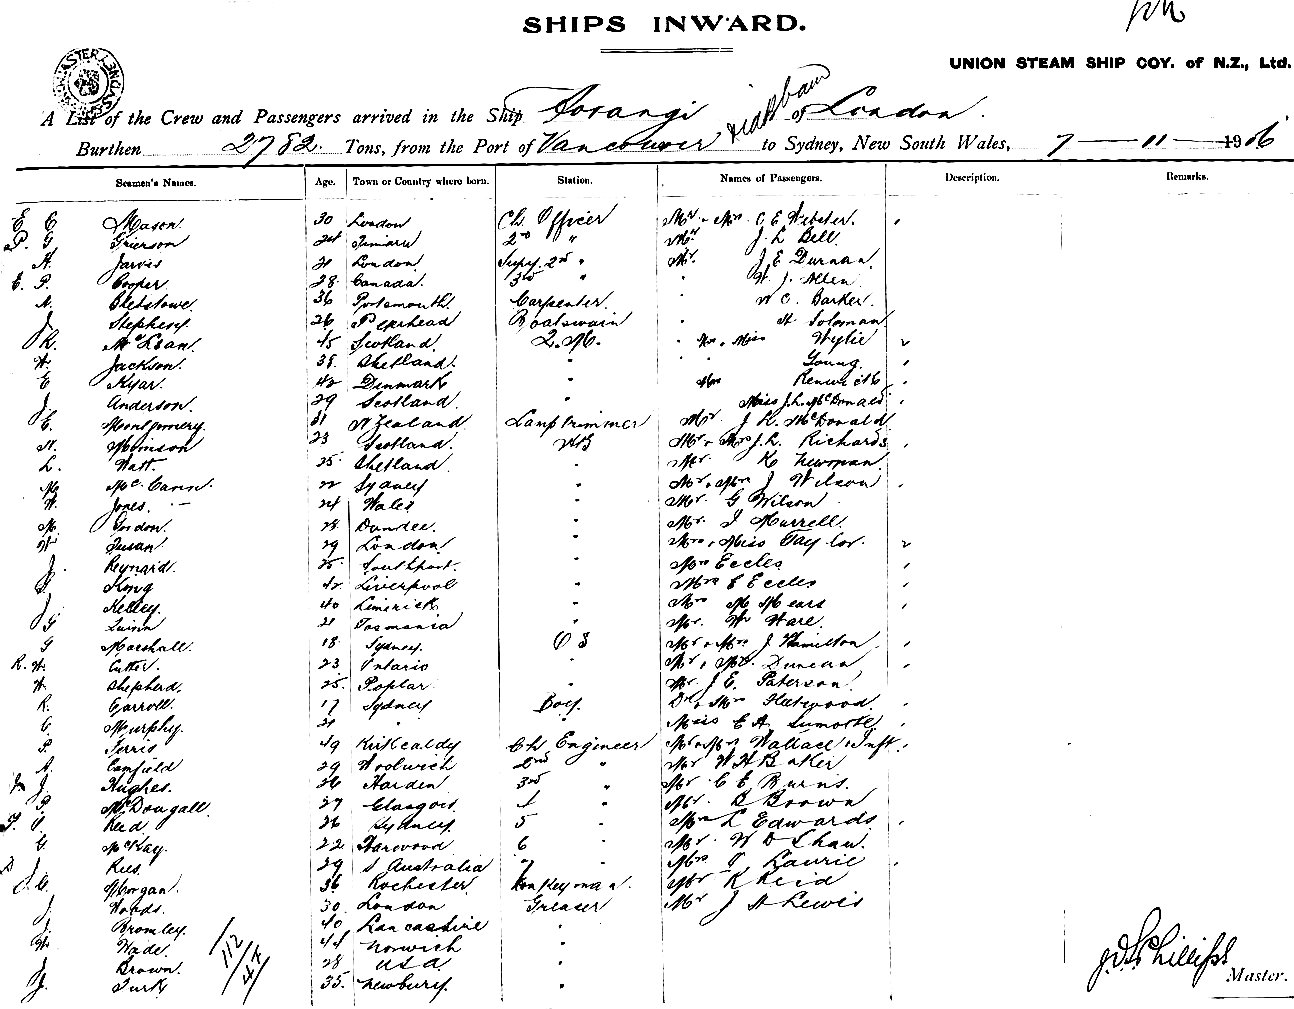 SHIPS INWARD.
UNION STEAM SHIP COY. of N.Z., Ltd.
A List of the Crew and Passengers arrived in the Ship Aorangi of London.
Burthen 2782 Tons, from the Port of Vancouver to Sydney, New South Wales, 7 — 11 — 1906
Seamen's Names. Age. Town or Country where born. Station. Names of Passengers. Description. Remarks.
E C Mason 30 London Ch Officer Mr & Mrs C E Webster.
P. G Grierson 24 Timaru 2nd " Mr J. L Bell
A. Jarvis 21 London Supy. 2nd " Mr. J E Durnan
E. P. Cooper 28 Canada. 3rd " W J. Allen
A. 36 Portsmouth Carpenter W C. Barker
J Stephen 26 Boatswain H Soloman
R. McLean 45 Scotland Q.M. Mr & Miss Wylie
W. Jackson. 38 Shetland. " Young
E Kjar 42 Denmark " Mrs Renwick
J. Anderson. 29 Scotland " Miss J. L. McDonald
E. Montgomery. 31 N Zealand Lamp trimmer Mr J R. McDonald
H. 23 Scotland AB Mr & Mrs J. L. Richards
L. Watt. 25 Shetland " Mr K Newman
M. McCann. 22 Sydney " Mr & Mrs J Wilson
W. Jones. 24 Wales " Mr G Wilson
M. Gordon. 28 Dundee. " Mr. I Murrell.
W 29 London " Mrs & Miss Taylor.
J. Reynard. 25 Southport. " Mrs Eccles
King 42 Liverpool " Mrs E Eccles
J. Kelley. 40 Limerick " Mrs M Mears
G Quinn 21 Tasmania " Mr. W Ware.
G Marshall. 18 Sydney. OS Mr & Mrs J Hamilton
R. W. Cutter. 23 Ontario " Mr & Mrs. Duncan
W Shepherd. 25. Poplar " Mr. J E. Paterson.
R. Carroll. 17 Sydney Boy. Dr & Mrs Fleetwood.
C. Murphy. 21 " " Miss E A.
P. Ferris 49 Kirkcaldy Ch Engineer Mr & Mrs Wallace & Inft.
A. Camfield 29 Woolwich 2nd " Mr W H Baker
J. Hughes. 26 Harden 3rd " Mr C E Burns.
P. McDougall. 27 Glasgow 4 " Mr. B Brown
Reid 26 Sydney 5 " Mrs L Edwards
G McKay. 22 Harwood 6 " Mr. W D Shaw
J. Rees. 29 S Australia 7 " Mrs T Laurie
C. Morgan. 36 Rochester Donkeyman. Mr K Reid
J. Woods. 30 London Greaser Mr J H Lewis
J. Bromley. 40 Lancashire "
W. Wade. 44 Norwich "
J. Brown. 28 USA "
J. Turk 35. Newbury. "
112/47
J. D. S. Phillips
Master.